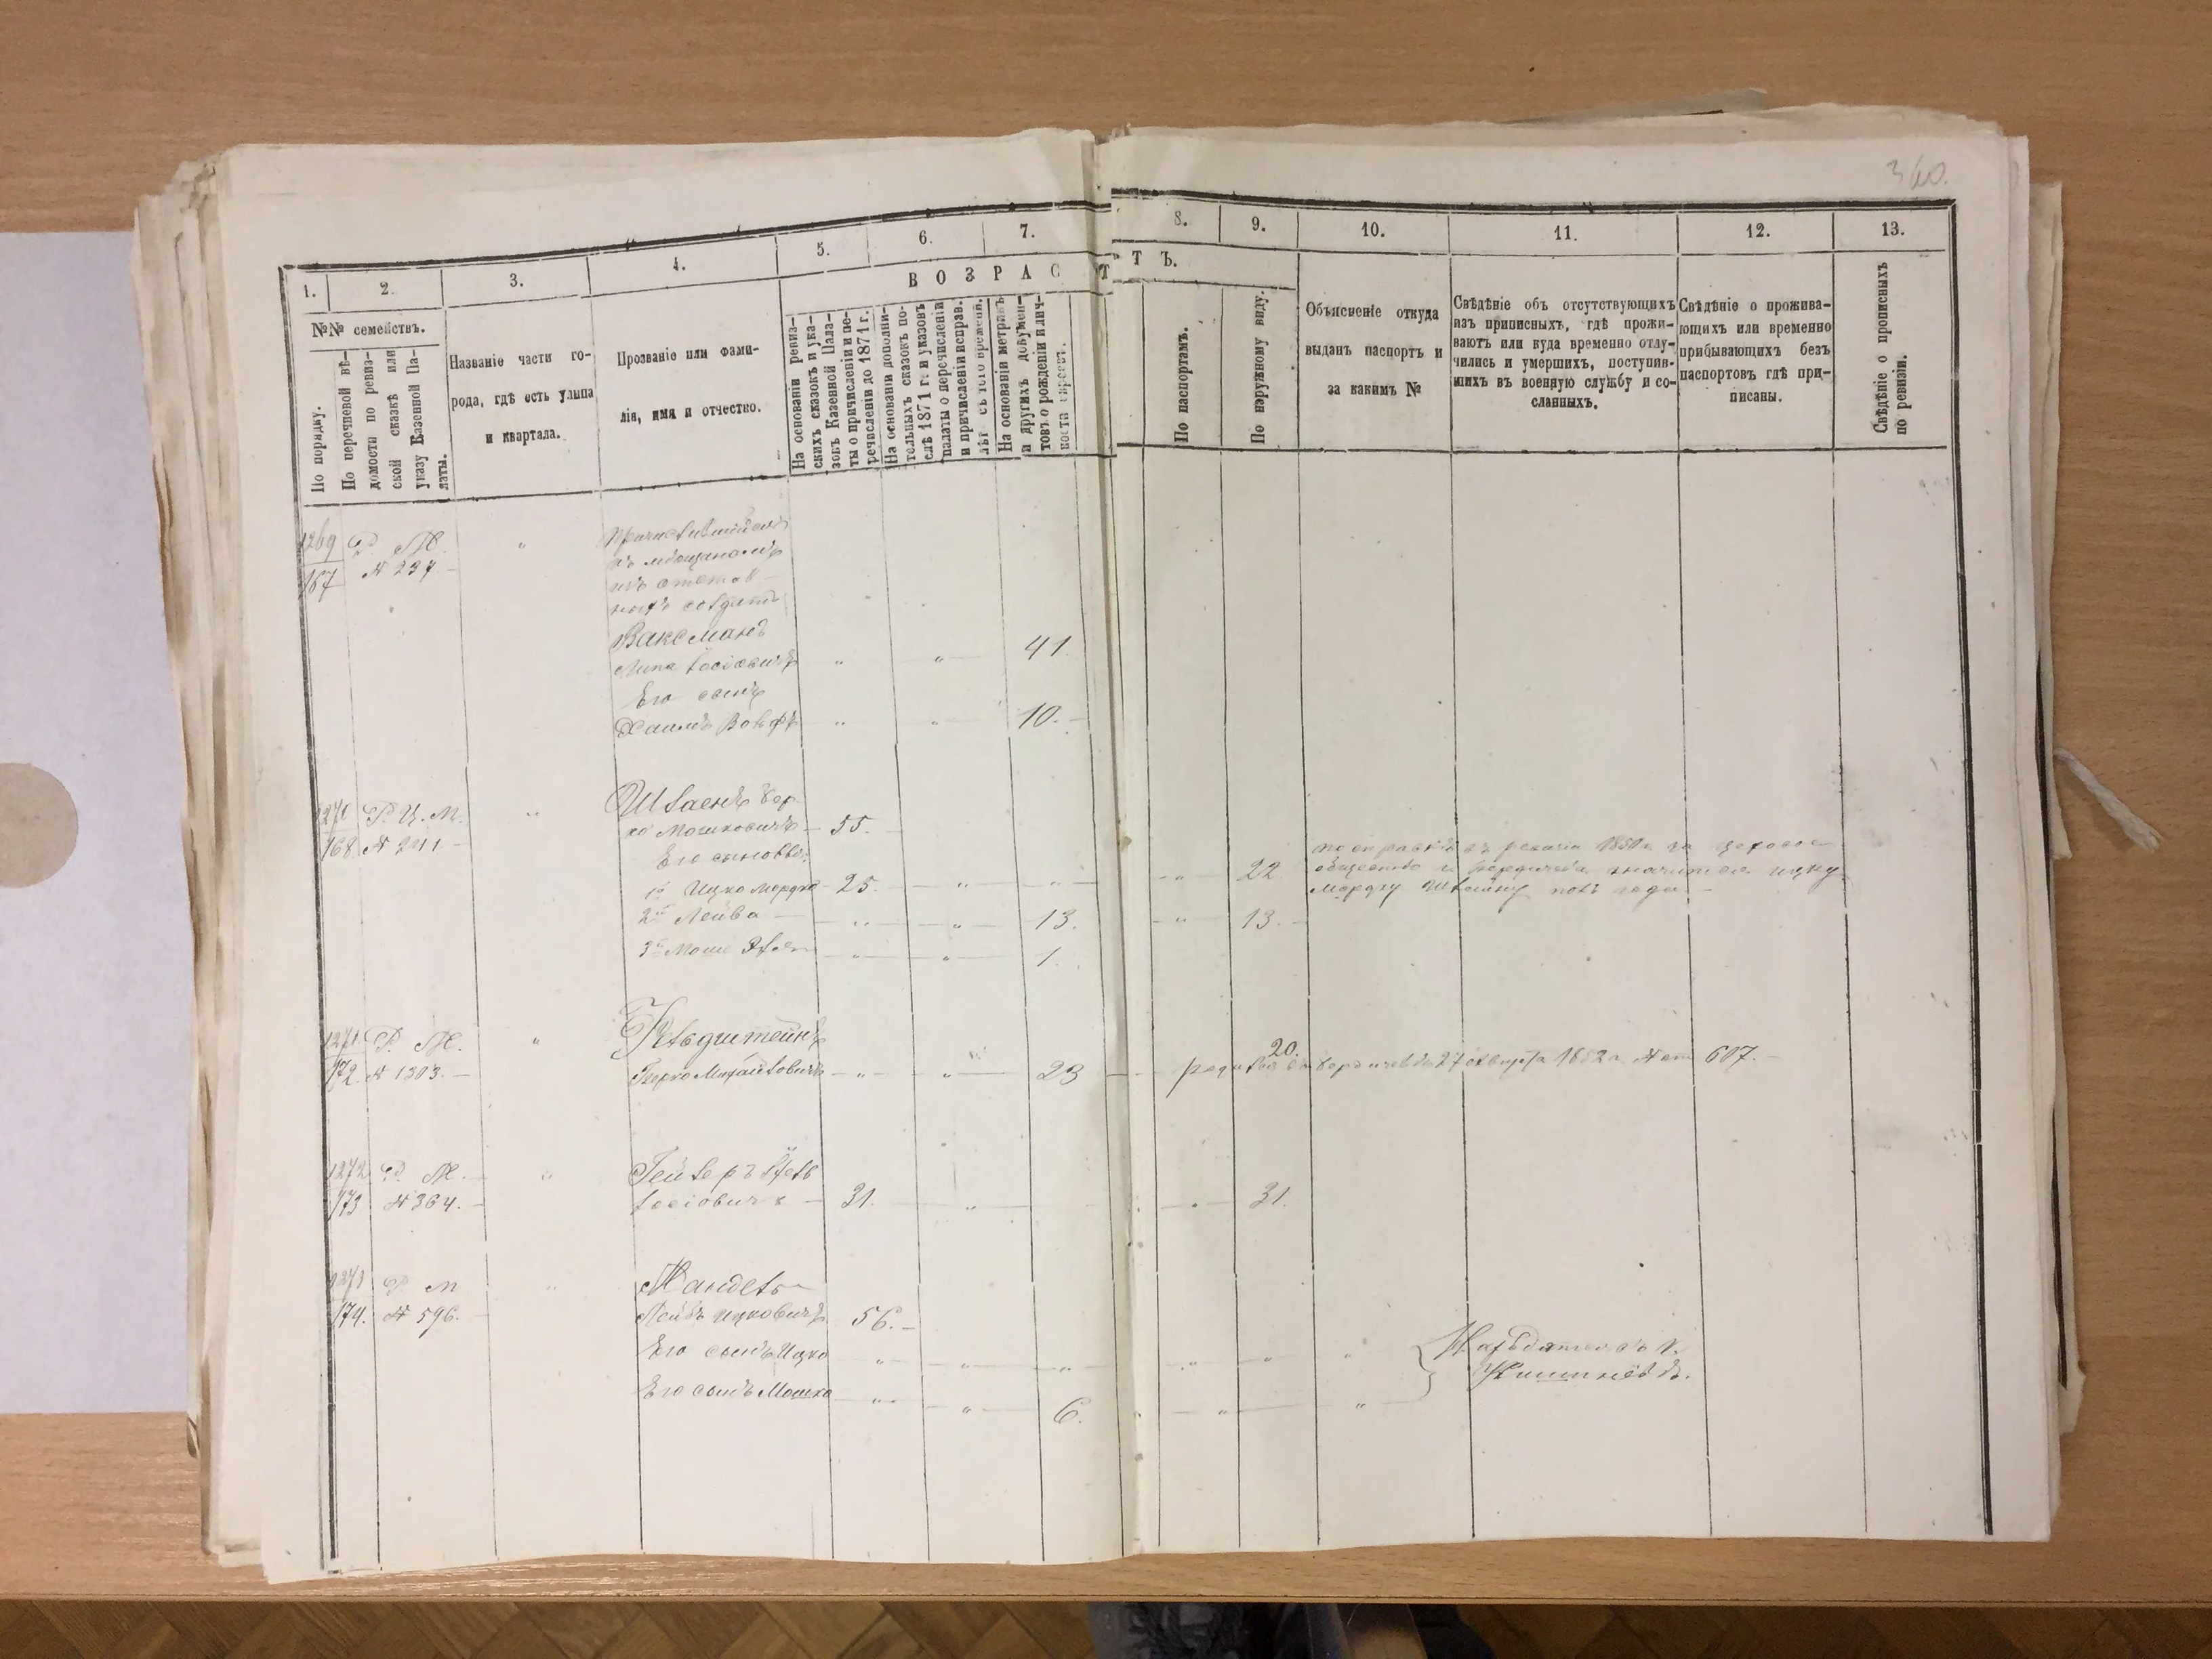 360.
1.
2.
3.
4.
5.
6.
7.
8.
9.
10.
11.
12.
13.
ВОЗРАСТЪ.
№№ семействъ.
По порядку.
По перечневой вѣ-
домости по ревиз-
ской сказкѣ или
указу Казенной Па-
латы.
Названіе части го-
рода, гдѣ есть улица
и квартала.
Прозваніе или фами-
лія, имя и отчество.
На основаніи ревиз-
скихъ сказокъ и ука-
зовъ Казенной Пала-
ты о причисленіи и пе-
речисленіи до 1871 г.
На основаніи дополни-
тельныхъ сказокъ по-
слѣ 1871 г. и указовъ
палаты о перечисленіи
и причисленіи исправ.
лѣт съ того времени.
На основаніи метрикъ
и другихъ докумен-
товъ о рожденіи и лич-
ности евреевъ.
По паспортамъ.
По наружному виду.
Объясненіе откуда
выданъ паспортъ и
за какимъ №
Свѣдѣніе объ отсутствующихъ
изъ приписныхъ, гдѣ прожи-
ваютъ или куда временно отлу-
чились и умершихъ, поступив-
шихъ въ военную службу и со-
сланныхъ.
Свѣдѣніе о прожива-
ющихъ или временно
прибывающихъ безъ
паспортовъ гдѣ при-
писаны.
Свѣдѣніе о прописныхъ
по ревизіи.
1269 Р. М.
167 № 237.
Причислившійся
къ мѣщанамъ
изъ отстав-
ныхъ солдатъ
Ваксманъ
Липа Іосіовичъ " " 41.
Его сынъ
Хаимъ Вольфъ " " 10.
1270 Р. Ц. М. " Штаенъ Бер-
168. № 241. ко Мошковичъ 55.
Его сыновья:
1й Ицко Мордко 25. " " " 22
по справкѣ съ ревизіи 1850 г. за цеховое
общество г. Бердичева значится Ицку
Мордку
2й Лейба " " 13. " 13.
3й Моше " " 1.
1271. Р. М. " Гольдштейнъ
172. № 1303. Берко " " 23 20.
родился въ Бердичевѣ 27 октября 1852 г. № 607.
1272 Р. М. " Гейлеръ
173 № 364. Іосіовичъ 31. " " 31.
1273 Р М " Мандель
174. № 596. Лейбъ Ицковичъ 56.
Его сынъ Ицко " " " " " "
Его сынъ Мошко " " 6. " "
Находятся въ г.
Кишинёвѣ.